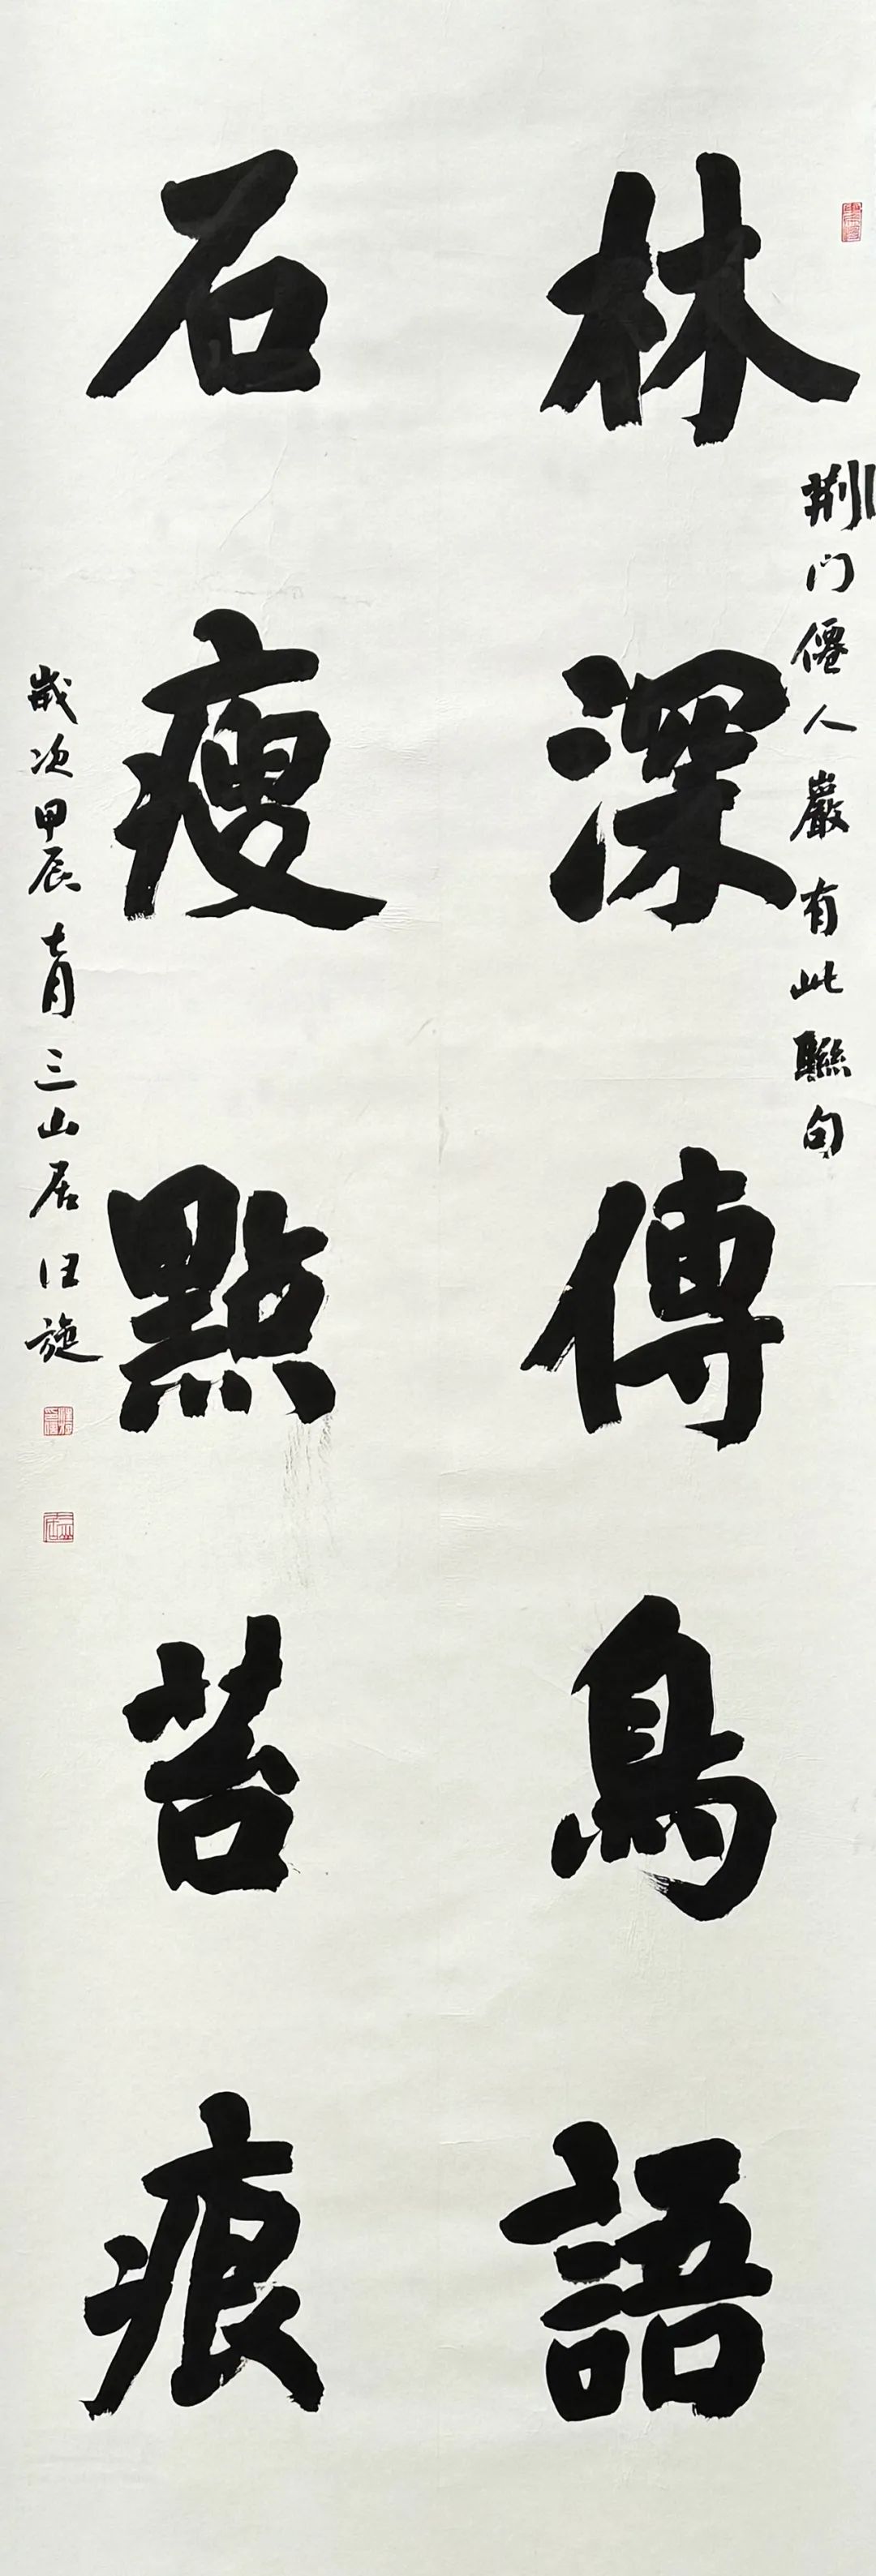 林深傳鳥語
荆门僊人巖有此聯句
石瘦點苔痕
歲次甲辰七月三山居汪施